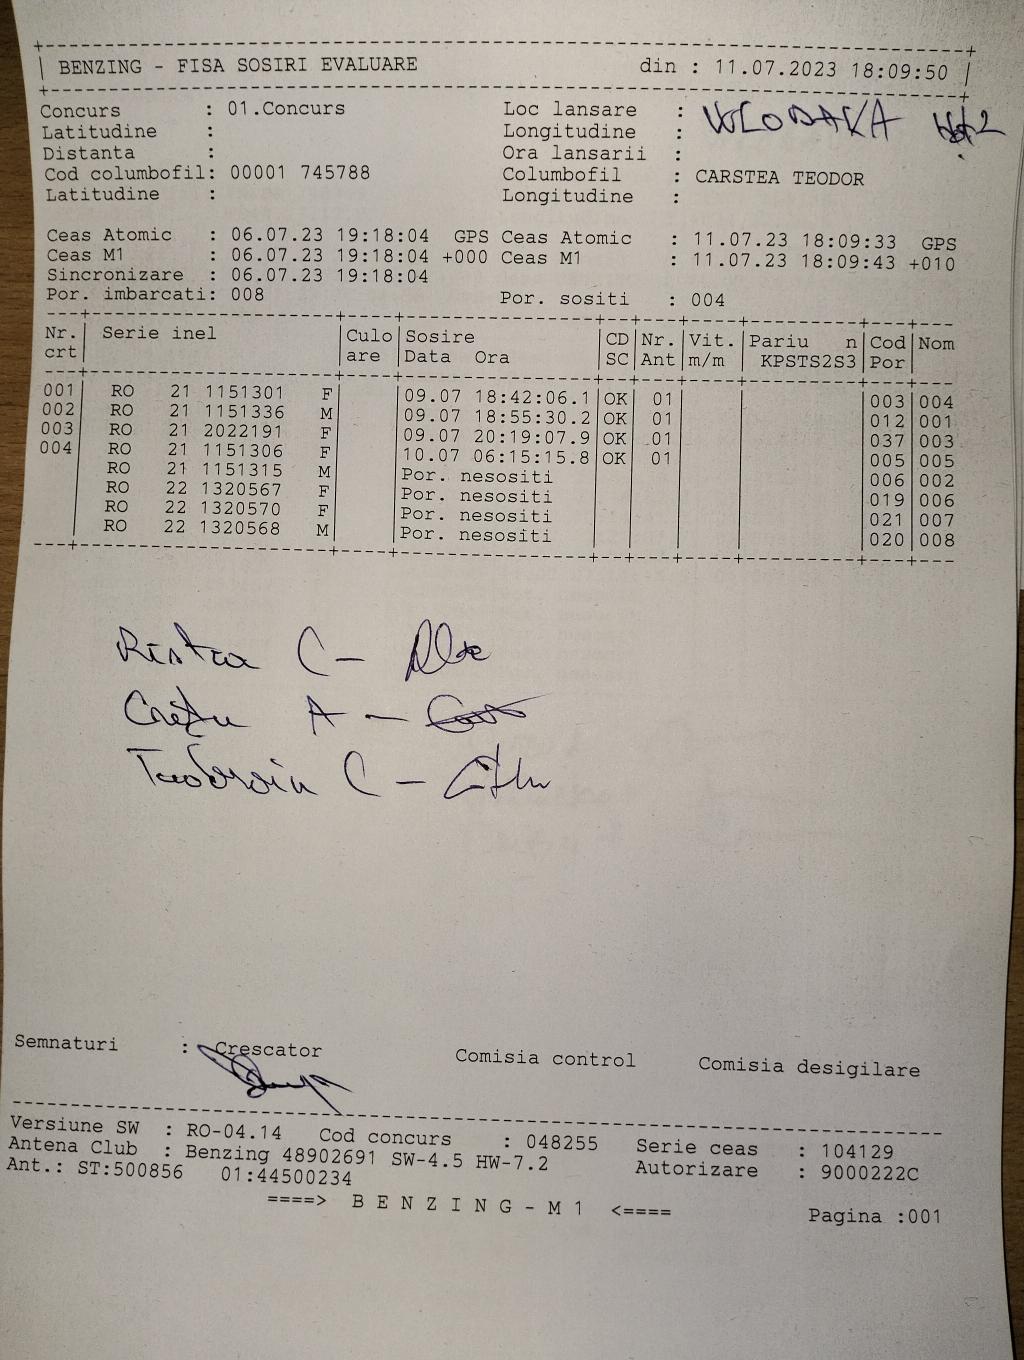 BENZING - FISA SOSIRI EVALUARE din : 11.07.2023 18:09:50
Concurs : 01.Concurs Loc lansare : WLODAKA
Latitudine : Longitudine :
Distanta : Ora lansarii :
Cod columbofil: 00001 745788 Columbofil : CARSTEA TEODOR
Latitudine : Longitudine :
Ceas Atomic : 06.07.23 19:18:04 GPS Ceas Atomic : 11.07.23 18:09:33 GPS
Ceas M1 : 06.07.23 19:18:04 +000 Ceas M1 : 11.07.23 18:09:43 +010
Sincronizare : 06.07.23 19:18:04
Por. imbarcati: 008 Por. sositi : 004
Nr. Serie inel Culo Sosire CD Nr. Vit. Pariu n Cod Nom
crt are Data Ora SC Ant m/m KPSTS2S3 Por
001 RO 21 1151301 F 09.07 18:42:06.1 OK 01 003 004
002 RO 21 1151336 M 09.07 18:55:30.2 OK 01 012 001
003 RO 21 2022191 F 09.07 20:19:07.9 OK 01 037 003
004 RO 21 1151306 F 10.07 06:15:15.8 OK 01 005 005
RO 21 1151315 M Por. nesositi 006 002
RO 22 1320567 F Por. nesositi 019 006
RO 22 1320570 F Por. nesositi 021 007
RO 22 1320568 M Por. nesositi 020 008
Ristea C -
Crețu A -
C -
Semnaturi : Crescator Comisia control Comisia desigilare
Versiune SW : RO-04.14 Cod concurs : 048255 Serie ceas : 104129
Antena Club : Benzing 48902691 SW-4.5 HW-7.2 Autorizare : 9000222C
Ant.: ST:500856 01:44500234
====> B E N Z I N G - M 1 <==== Pagina :001